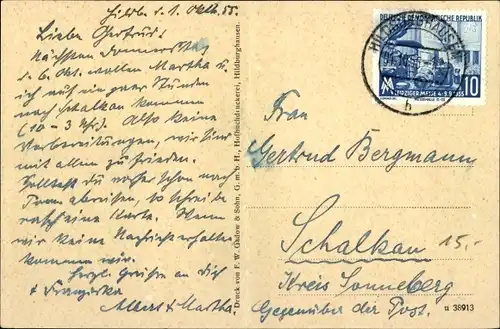 Hildbg. d. 1. Okt. 55.
Liebe Gertrud!
Nächsten Donnerstag
d. 6. Okt. wollen Martha u.
ich auf ein paar Stunden
nach Schalkau kommen
(10 – 3 Uhr). Also keine
Vorbereitungen, wir sind
mit allem zufrieden.
Solltest du vorher schon nach
abreisen, so schreibe
rasch eine Karte. Wenn
wir keine Nachricht erhalten
kommen wir.
Herzl. Grüßen an Dich
+ Franziska
Albert + Martha
Druck von F. W. Gadow & Sohn, G. m. b. H., Hofbuchdruckerei, Hildburghausen.
DEUTSCHE DEMOKRATISCHE REPUBLIK
LEIPZIGER MESSE 4.-9.9.1955
10
HILDBURGHAUSEN
h
Frau
Gertrud Bergmann
Schalkau
15.-
Kreis Sonneberg
Gegenüber der Post.
u 38913